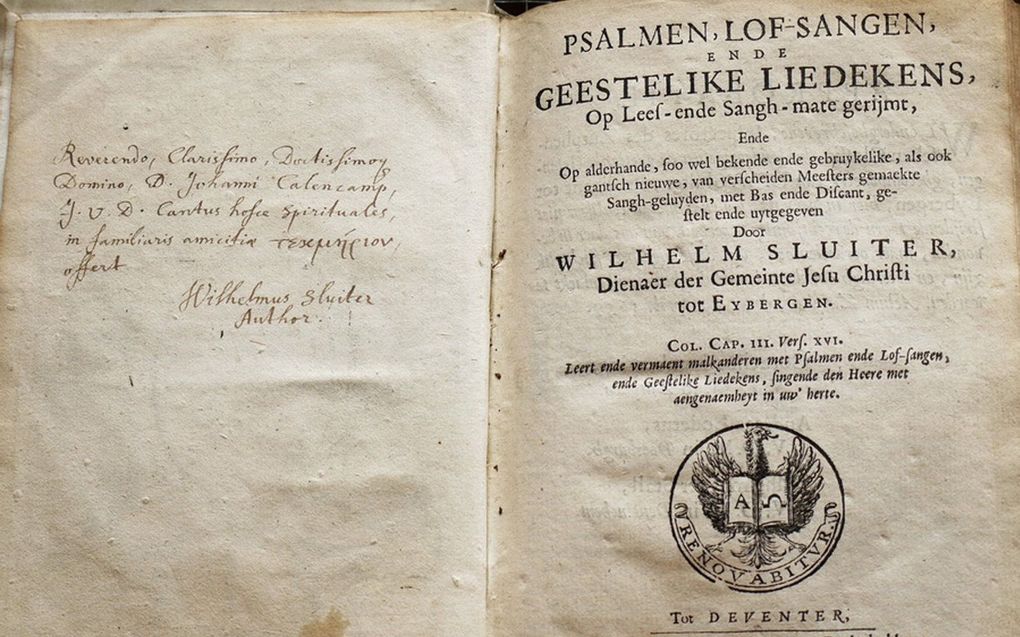 Reverendo, Clarissimo, Doctissimoq
Domino, D. Johanni Calencamp,
J. V. D. Cantus hosce Spirituales,
in familiaris amicitiæ τεκμήριον,
offert
Wilhelmus Sluiter
Author.
PSALMEN, LOF-SANGEN,
ENDE
GEESTELIKE LIEDEKENS,
Op Leeſ-ende Sangh-mate gerijmt,
Ende
Op alderhande, ſoo wel bekende ende gebruykelike, als ook
gantſch nieuwe, van verſcheiden Meeſters gemaekte
Sangh-geluyden, met Bas ende Diſcant, ge-
ſtelt ende uytgegeven
Door
WILHELM SLUITER,
Dienaer der Gemeinte Jeſu Chriſti
tot EYBERGEN.
COL. CAP. III. Verſ. XVI.
Leert ende vermaent malkanderen met Pſalmen ende Lof-ſangen,
ende Geeſtelike Liedekens, ſingende den Heere met
aengenaemheyt in uw' herte.
A Ω
RENOVABITVR.
Tot DEVENTER,